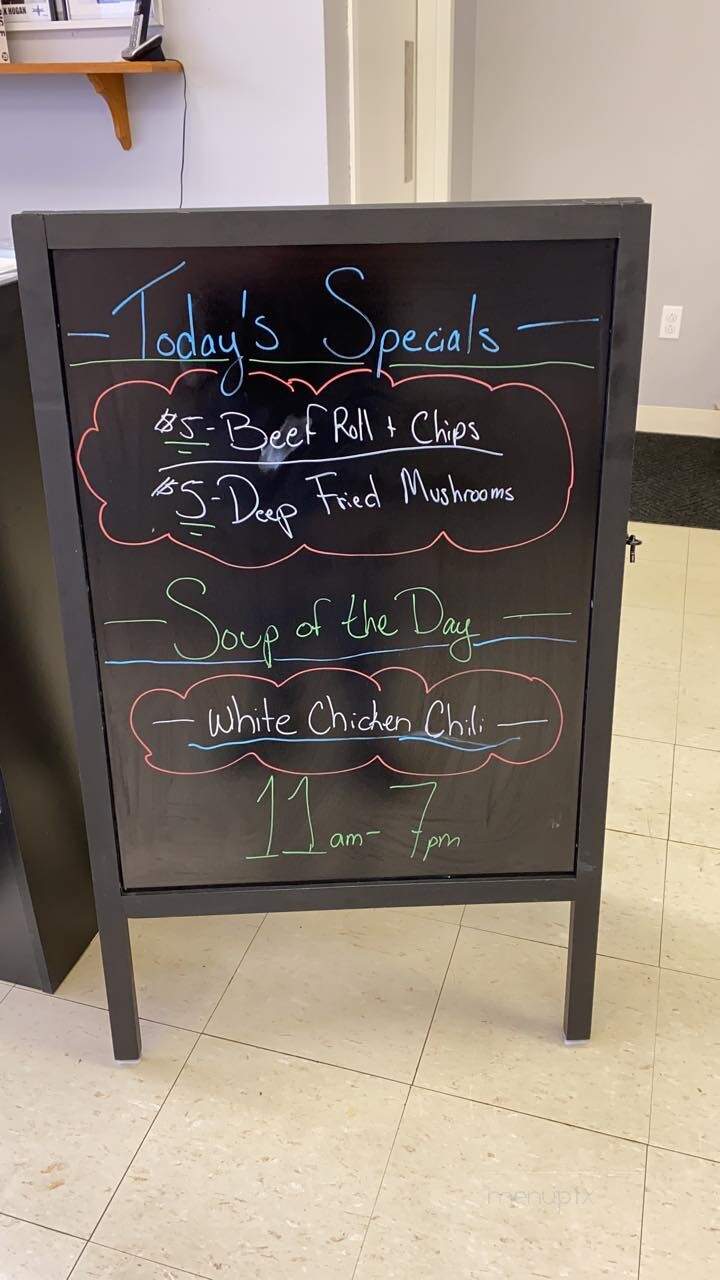 K HOGAN
- Today's Specials -
$5 - Beef Roll + Chips
$5 - Deep Fried Mushrooms
- Soup of the Day -
- White Chicken Chili -
11am - 7pm
menupix